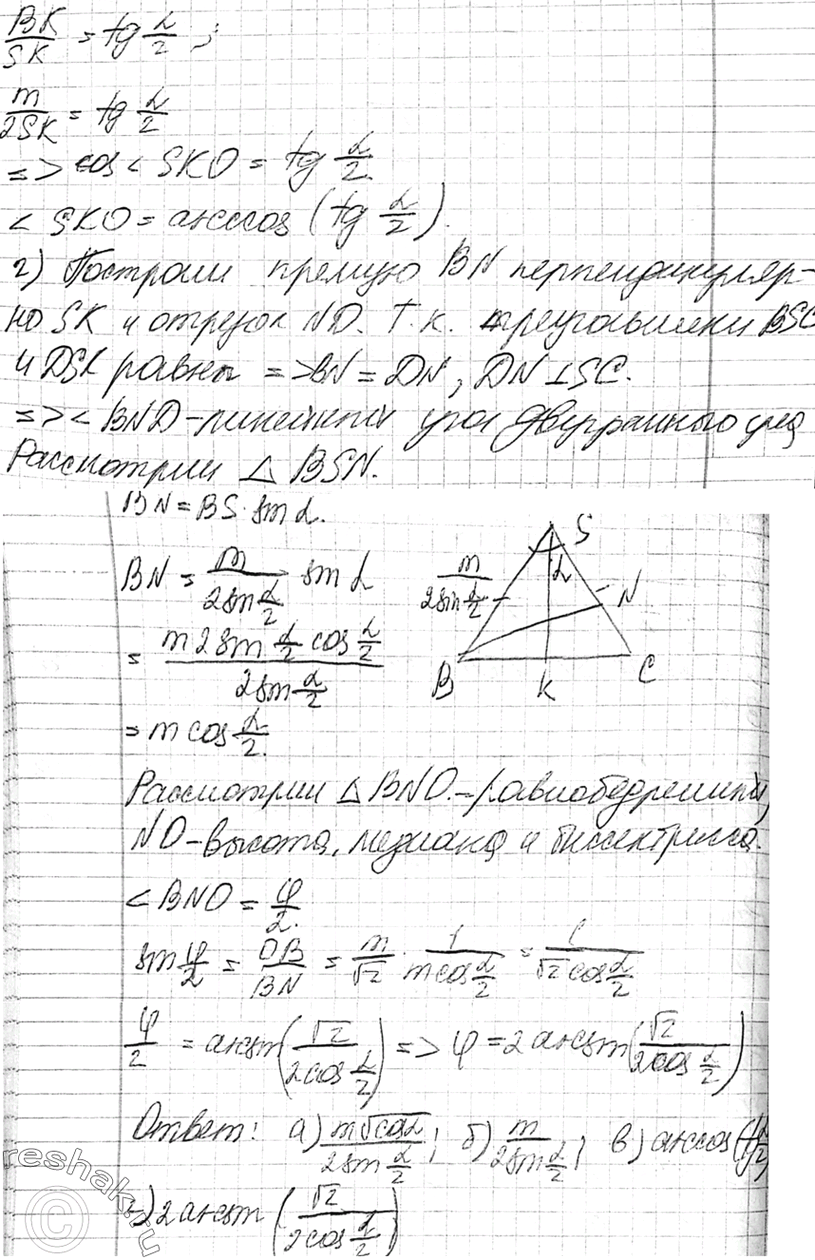 BK/SK = tg α/2 ;
m/2SK = tg α/2
=> cos < SKO = tg α/2.
< SKO = arccos (tg α/2).
г) Построим прямую BN перпендикуляр-
но SK и отрезок ND. Т.к. треугольники BSC
и DSK равны => BN = DN, DN ⊥ SC.
=> < BND - линейный угол двугранного угла
Рассмотрим △ BSN.
BN = BS · sin α.
BN = m/(2 sin α/2) sin α
= (m 2 sin α/2 cos α/2)/(2 sin α/2)
= m cos α/2.
S
α
m/(2 sin α/2)
N
B
K
C
Рассмотрим △ BND. - равнобедренный,
NO - высота, медиана и биссектрисса.
< BNO = φ/2.
sin φ/2 = OB/BN = m/√2 · 1/(m cos α/2) = 1/(√2 cos α/2)
φ/2 = arcsin(√2/(2 cos α/2)) => φ = 2 arcsin(√2/(2 cos α/2))
Ответ: а) m√cos α/(2 sin α/2); б) m/(2 sin α/2); в) arccos(tg α/2)
г) 2 arcsin (√2/(2 cos α/2))
© reshak.ru